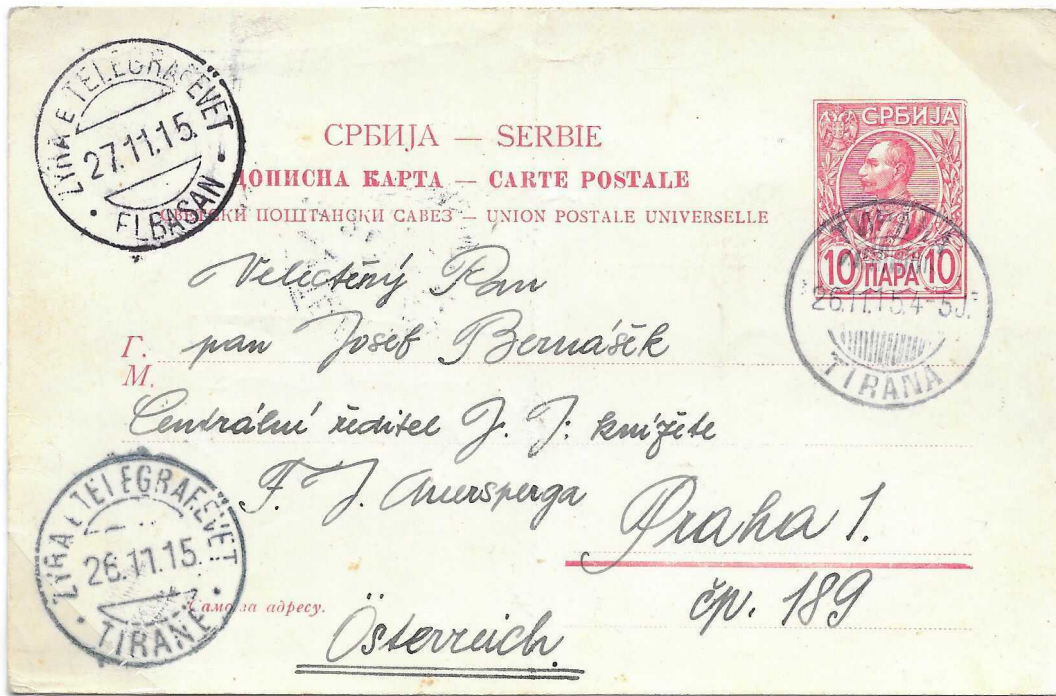 ZYRA E TELEGRAFËVET
27.11.15.
ELBASAN
СРБИЈА
10 ПАРА 10
СРБИЈА — SERBIE
ДОПИСНА КАРТА — CARTE POSTALE
СВЕТСКИ ПОШТАНСКИ САВЕЗ — UNION POSTALE UNIVERSELLE
26.11.15.4-5
TIRANA
Velectěný Pan
Г.
М.
pan Josef Bernášek
Centrální ředitel J. J. knížete
F. J. Auersperga
Praha 1.
čp. 189
Österreich
ZYRA E TELEGRAFËVET
26.11.15.
TIRANË
Само за адресу.